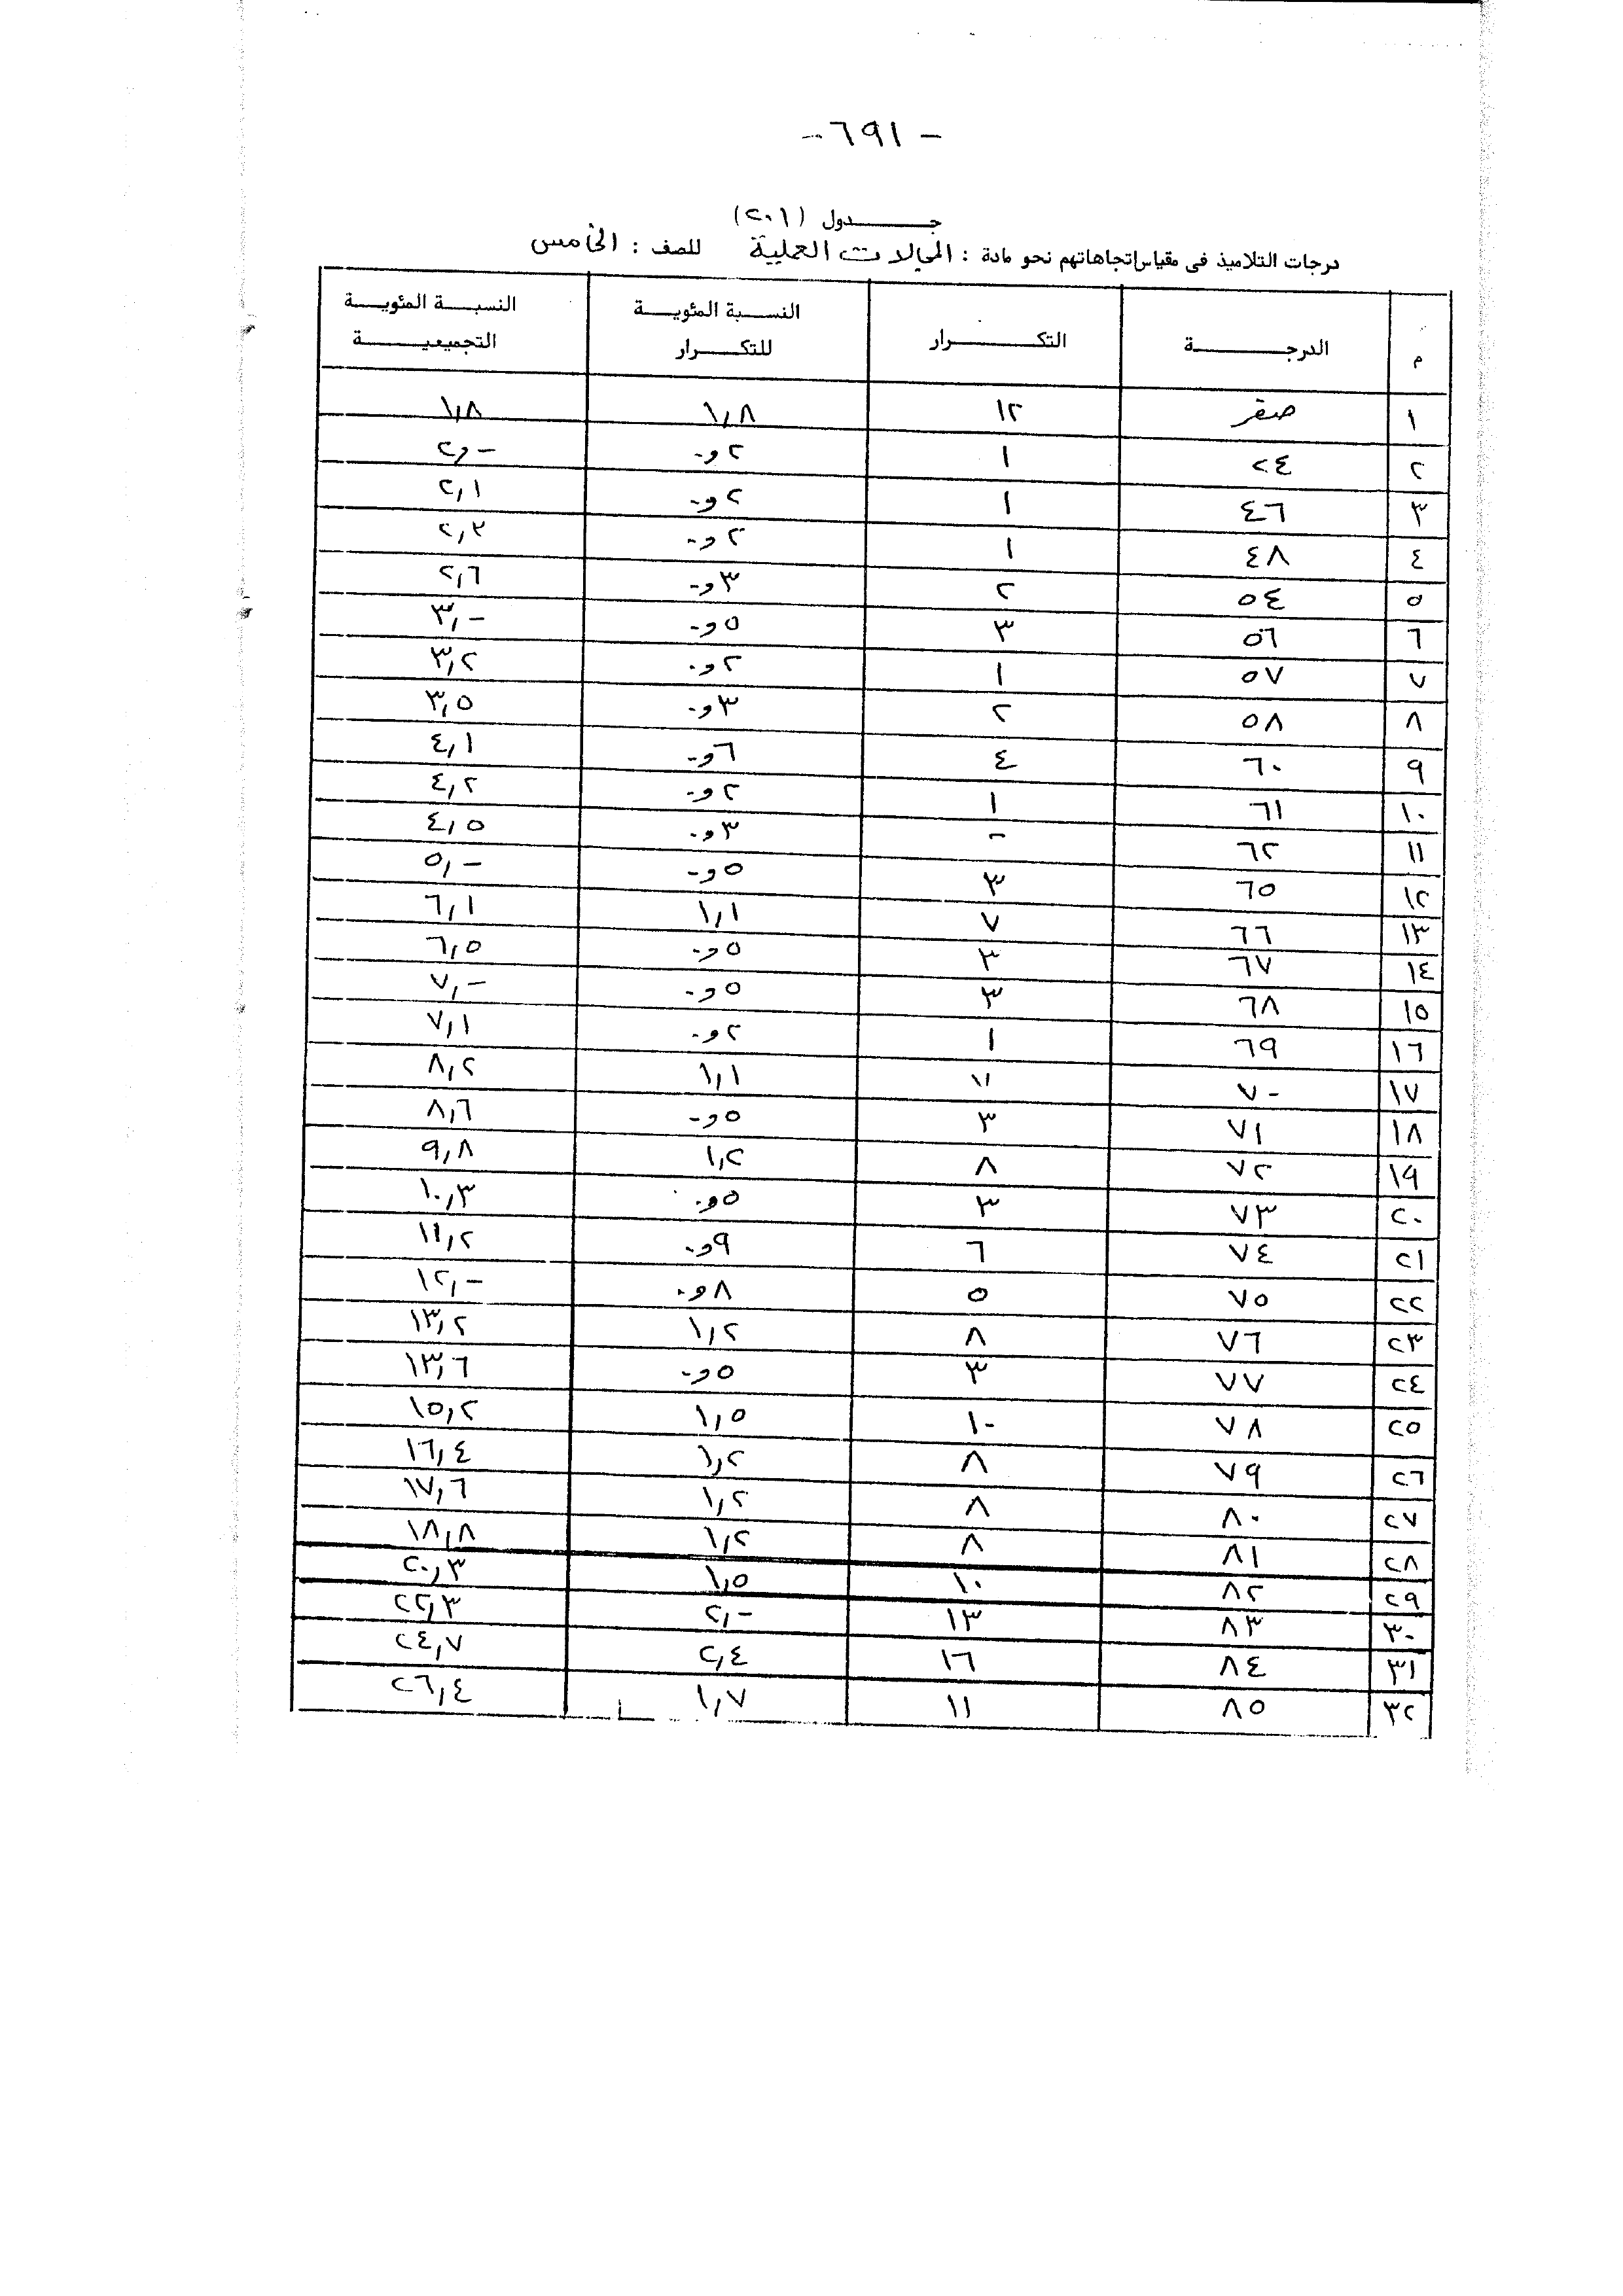 - ٦٩١ -
جدول (٢٠١)
درجات التلاميذ فى مقياس اتجاهاتهم نحو مادة : المجالات العملية للصف : الخامس
م الدرجة التكرار النسبة المئوية للتكرار النسبة المئوية التجميعية
١ صفر ١٢ ١,٨ ١,٨
٢ ٢٤ ١ ٢و- ٢و-
٣ ٤٦ ١ ٢و- ٢,١
٤ ٤٨ ١ ٢و- ٢,٣
٥ ٥٤ ٢ ٣و- ٢,٦
٦ ٥٦ ٣ ٥و- ٣,-
٧ ٥٧ ١ ٢و- ٣,٢
٨ ٥٨ ٢ ٣و- ٣,٥
٩ ٦٠ ٤ ٦و- ٤,١
١٠ ٦١ ١ ٢و- ٤,٢
١١ ٦٢ ٣و- ٤,٥
١٢ ٦٥ ٣ ٥و- ٥,-
١٣ ٦٦ ٧ ١,١ ٦,١
١٤ ٦٧ ٣ ٥و- ٦,٥
١٥ ٦٨ ٣ ٥و- ٧,-
١٦ ٦٩ ١ ٢و- ٧,١
١٧ ٧٠ ١,١ ٨,٢
١٨ ٧١ ٣ ٥و- ٨,٦
١٩ ٧٢ ٨ ١,٢ ٩,٨
٢٠ ٧٣ ٣ ٥و- ١٠,٣
٢١ ٧٤ ٦ ٩و- ١١,٢
٢٢ ٧٥ ٥ ٨و- ١٢,-
٢٣ ٧٦ ٨ ١,٢ ١٣,٢
٢٤ ٧٧ ٣ ٥و- ١٣,٦
٢٥ ٧٨ ١٠ ١,٥ ١٥,٢
٢٦ ٧٩ ٨ ١,٢ ١٦,٤
٢٧ ٨٠ ٨ ١,٢ ١٧,٦
٢٨ ٨١ ٨ ١,٢ ١٨,٨
٢٩ ٨٢ ١٠ ١,٥ ٢٠,٣
٣٠ ٨٣ ١٣ ٢,- ٢٢,٣
٣١ ٨٤ ١٦ ٢,٤ ٢٤,٧
٣٢ ٨٥ ١١ ١,٧ ٢٦,٤